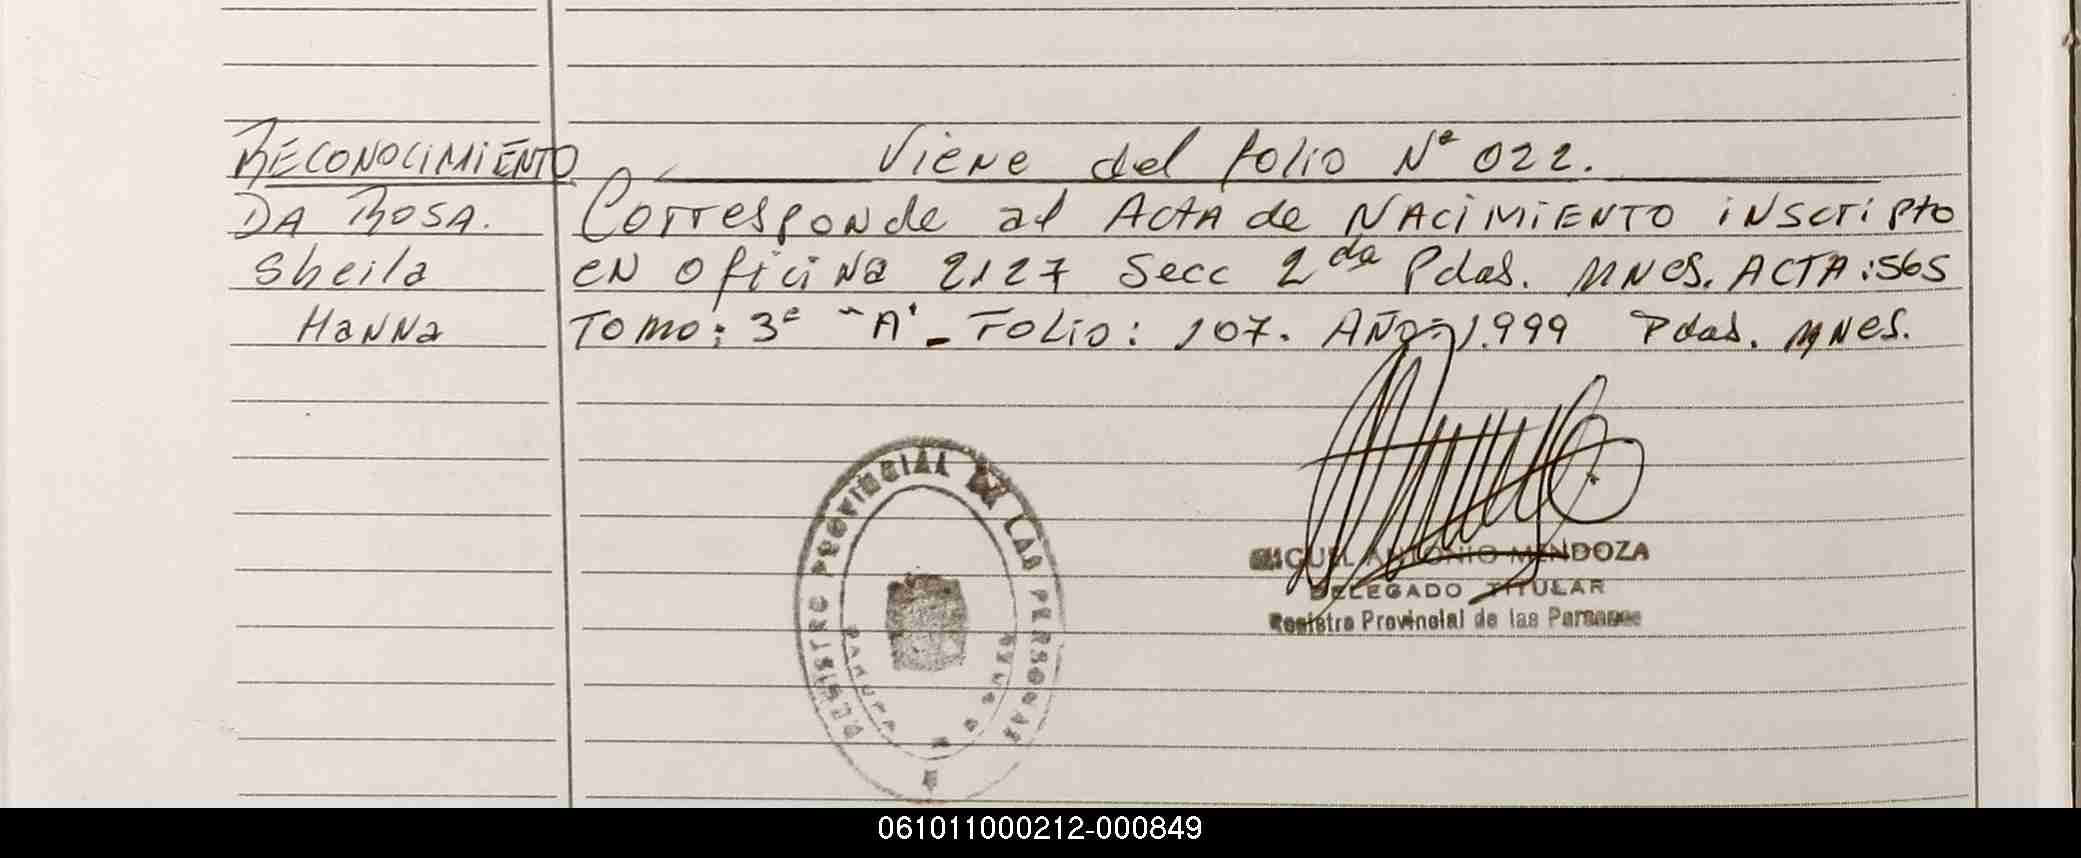 RECONOCIMIENTO Viene del folio Nº 022.
DA ROSA. Corresponde al ACTA de NACIMIENTO iNScripto
Sheila EN oficiNa 2127 Secc 2da Pdas. MNes. ACTA:565
HaNNa TOMO: 3º "A" - FOLiO: 107. AÑO: 1.999 Pdas. MNes.
REGISTRO PROVINCIAL DE LAS PERSONAS
MIGUEL ANTONIO MENDOZA
DELEGADO TITULAR
Registro Provincial de las Personas
061011000212-000849